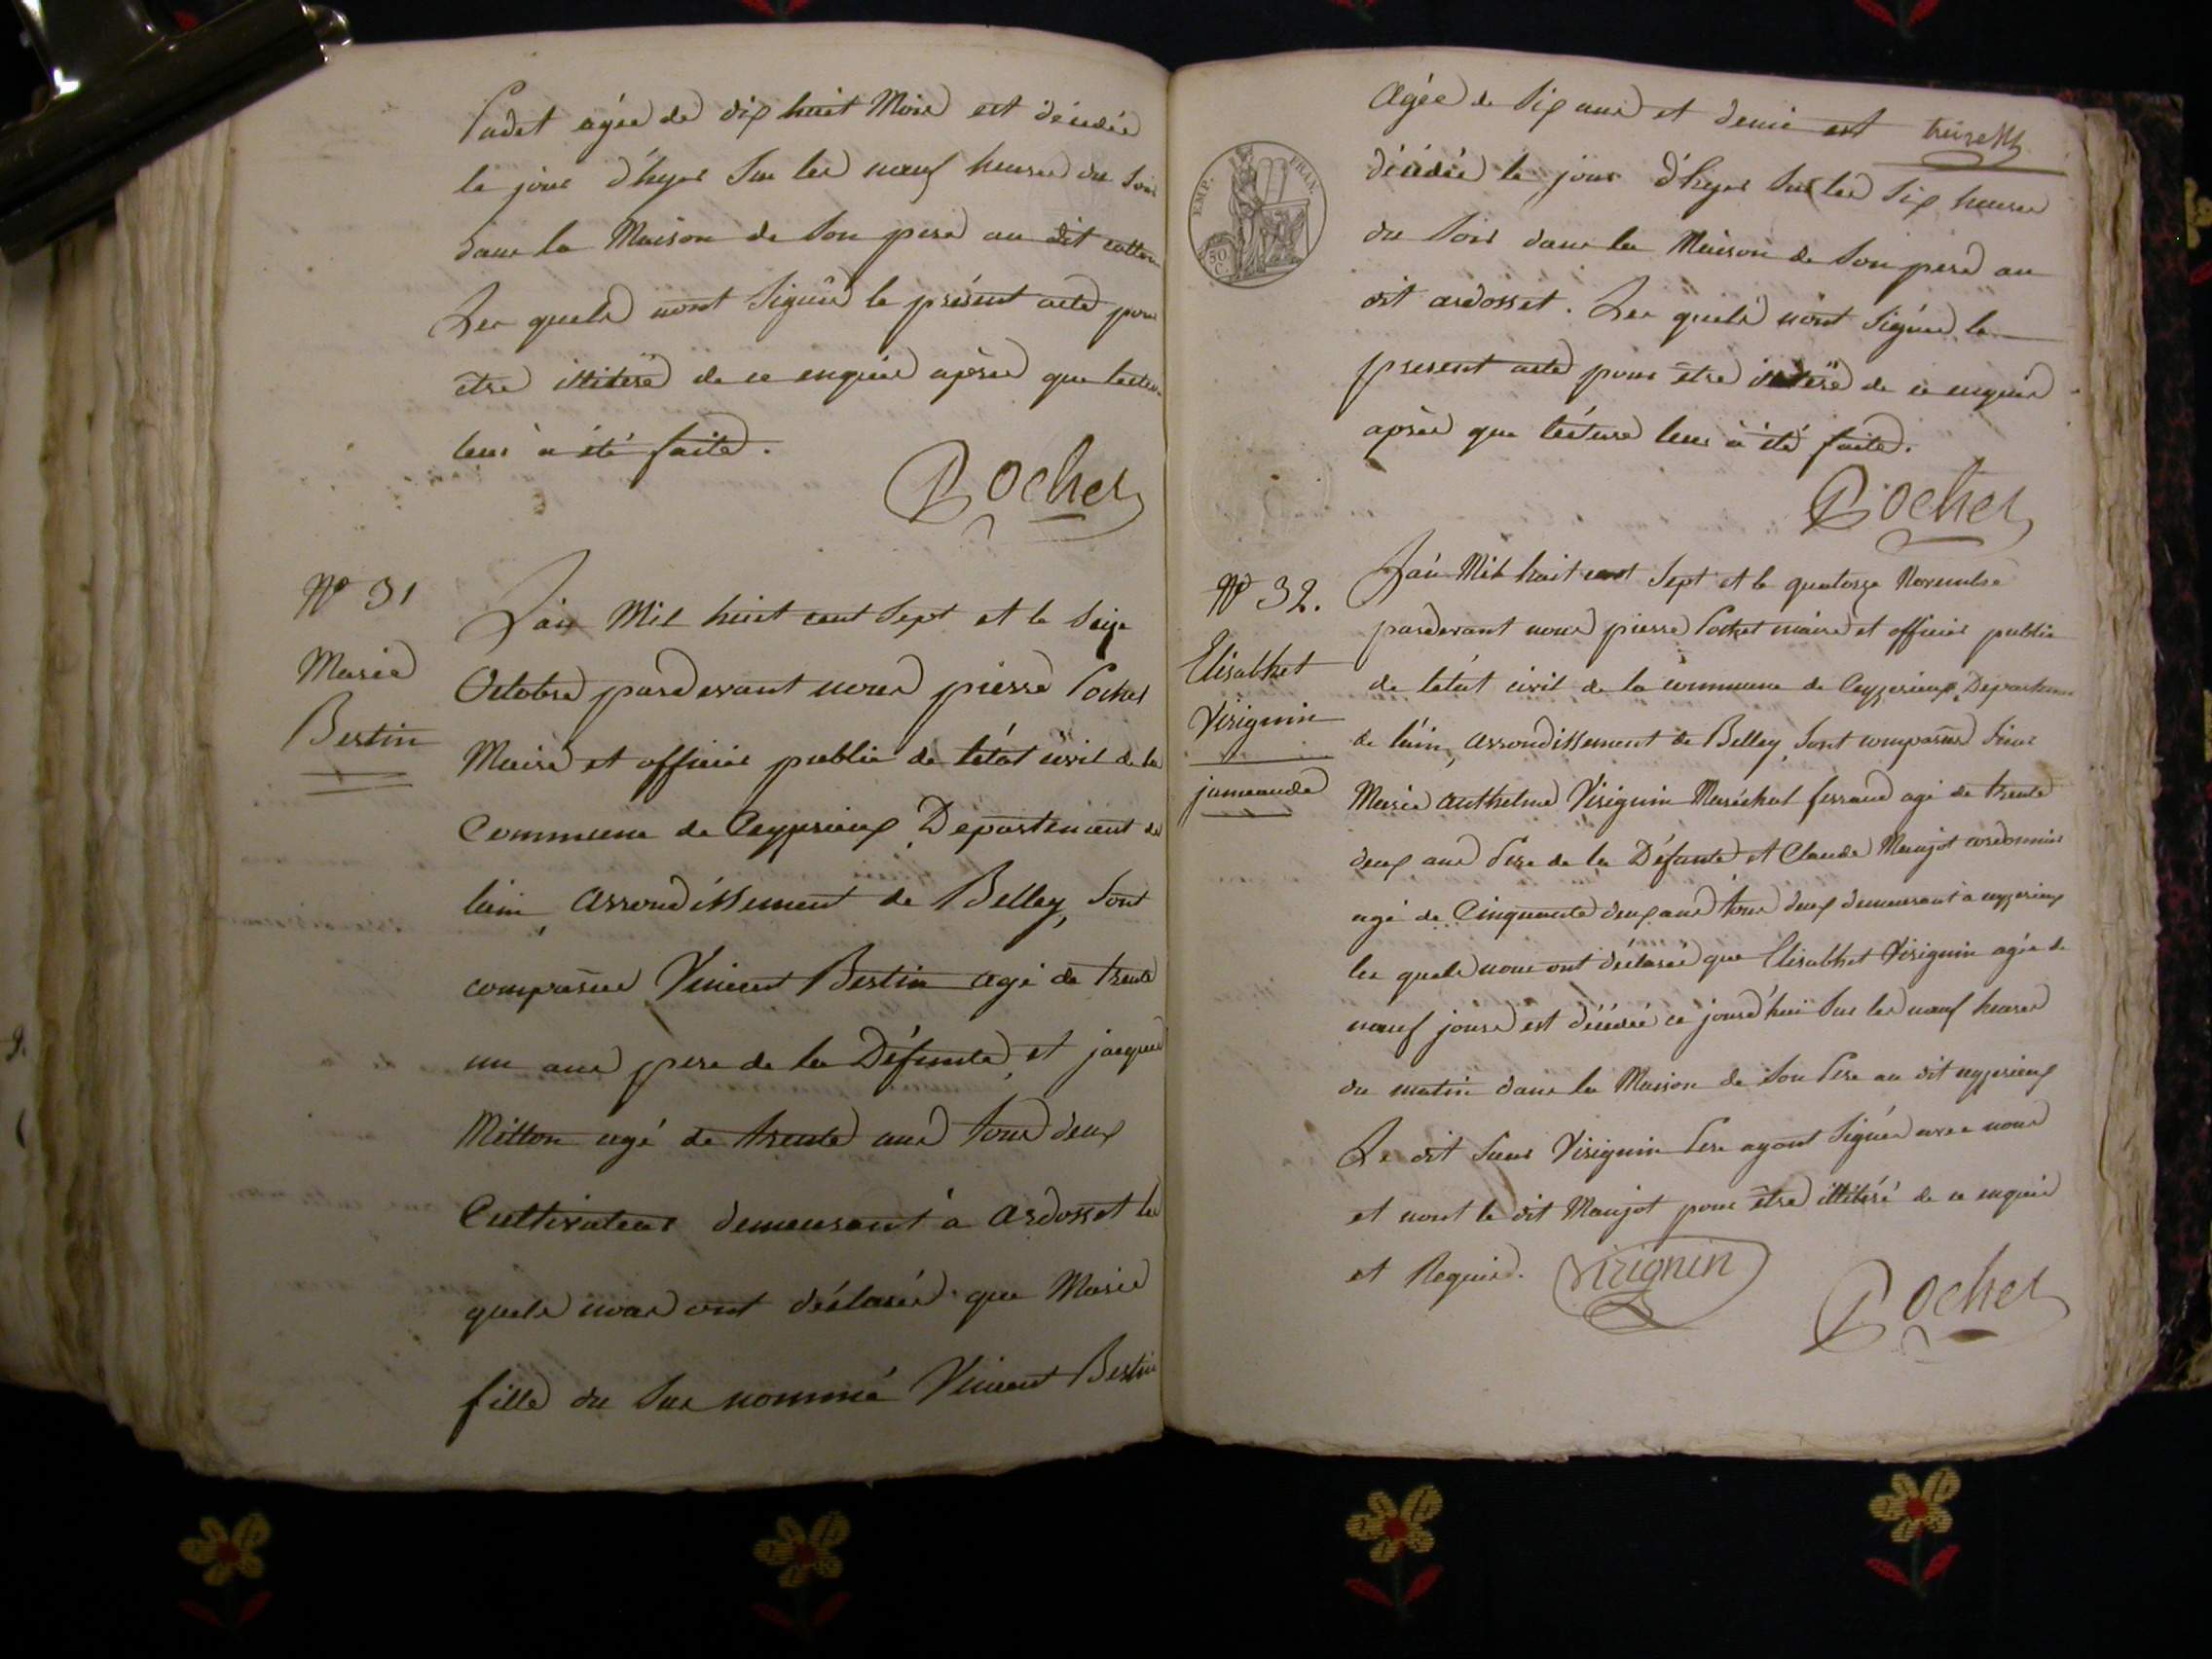 Cadet agée de dix huit Mois est décédée
le jour d'hyer Sur les neuf heures du Soir
dans la Maison de Son pere au dit
Les quels n'ont Signés le présent acte pour
être illiteré de ce enquis après que lecture
leur à été faite.
Pochet
N° 31
Marie
Bertin
L'an Mil huit cent Sept et le Seize
Octobre pardevant nous pierre Pochet
Maire et officier public de l'état civil de la
Commune de Ceyzerieux Departement de
l'ain, Arrondissement de Belley, Sont
comparus Vincent Bertin agé de trente
un ans pere de la Défunte, et jacques
Mitton agé de trente ans tous deux
Cultivateur demeurant à Ardosset les
quels nous ont déclarés que Marie
fille du Sus nommé Vincent Bertin
Agée de Six ans et demi est
décédée le jour d'hyer Sur les Six heures
du Soir dans la Maison de Son pere au
dit ardosset. Les quels n'ont Signés le
present acte pour être illiteré de ce enquis
après que lecture leur à été faite.
Pochet
EMP. FRAN.
50 C.
N° 32.
Elisabhet
Virignin
jumeaude
L'an Mil huit cent Sept et le quatorze Novembre
pardevant nous pierre Pochet maire et officier public
de l'état civil de la commune de Ceyzerieux, Departement
de l'ain, Arrondissement de Belley, Sont comparus Sieur
Marie Anthelme Virignin Maréchal ferrand agé de trente
deux ans Pere de la Défunte et Claude Maujot cordonnier
agé de Cinquante deux ans tous deux demeurant à ceyzerieux
les quels nous ont déclarés que Elisabhet Virignin agée de
neuf jours est décédée ce jourd'hui Sur les neuf heures
du matin dans la Maison de Son Pere au dit ceyzerieux
Le dit Sieur Virignin Pere ayant Signés avec nous
et nont le dit Maujot pour être illitéré de ce enquis
et Requis.
Virignin
Pochet